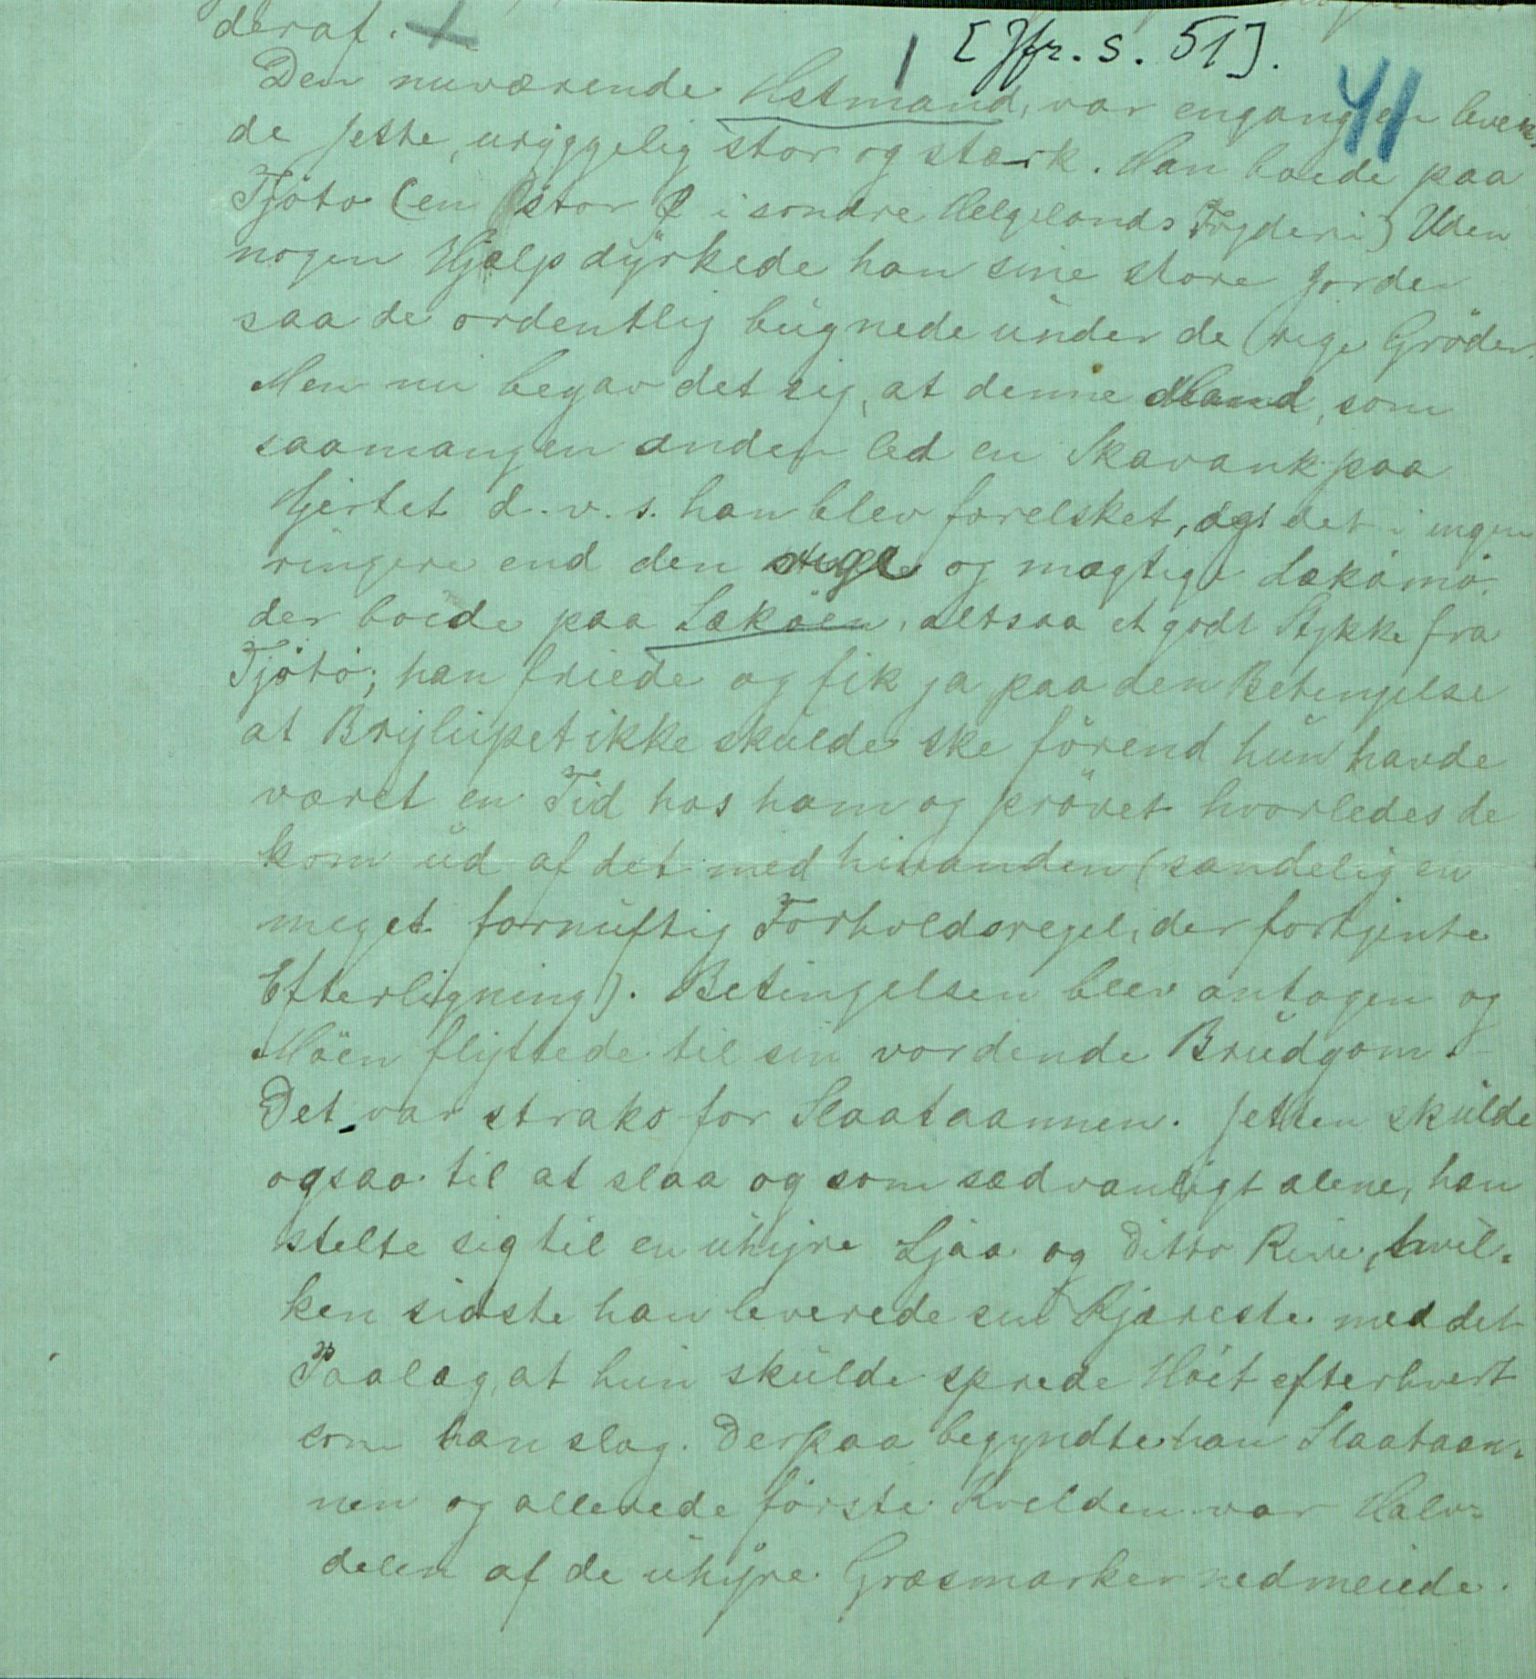 deraf.
[Jfr. s. 51].
41
Den nuværende Hestmand, var engang en leven-
de Jette, uryggelig stor og stærk. Han boede paa
Tjötö (en stor Ø i söndre Helgelands Fogderi) Uden
nogen Hjælp dyrkede han sine store Jorder
saa de ordentlig bugnede under de rige Gröder.
Men nu begav det sig, at denne Mand, som
saamangen anden led en Skavank paa
Hjertet d.v.s. han blev forelsket, og det i ingen
ringere end den og mægtige Lækömö.
der boede paa Læköen, altsaa et godt Stykke fra
Tjötö; han friede og fik ja paa den Betingelse
at Bryllupet ikke skulde ske förend hun havde
været en Tid hos ham og prövet hvorledes de
kom ud af det med hinanden (sandelig en
meget fornuftig Forholdsregel, der fortjente
Efterligning). Betingelsen blev antagen og
Möen flyttede til sin vordende Brudgom -
Det var straks for Slaataannen. Jetten skulde
ogsaa til at slaa og som sædvanligt alene, han
stelte sig til en uhyre Ljaa og Ditto Rive, hvil-
ken sidste han leverede sin Kjæreste med det
Paalæg, at hun skulde sprede Höet efterhvert
som han slog. Derpaa begyndte han Slaataan-
nen og allerede förste Kvelden var Halv-
delen af de uhyre Græsmarker nedmeiede.